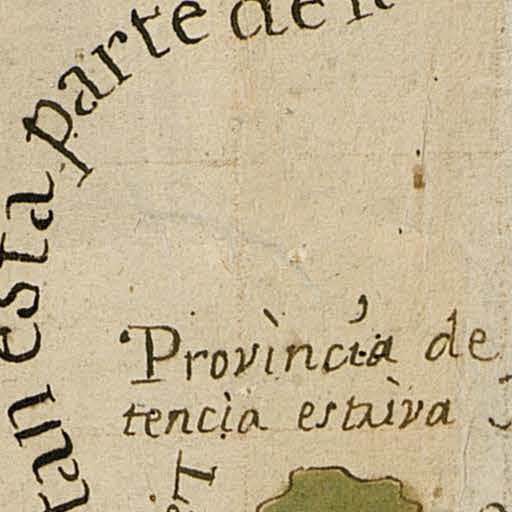 tan esta parte de
Provìncia de
tencìa estaìva